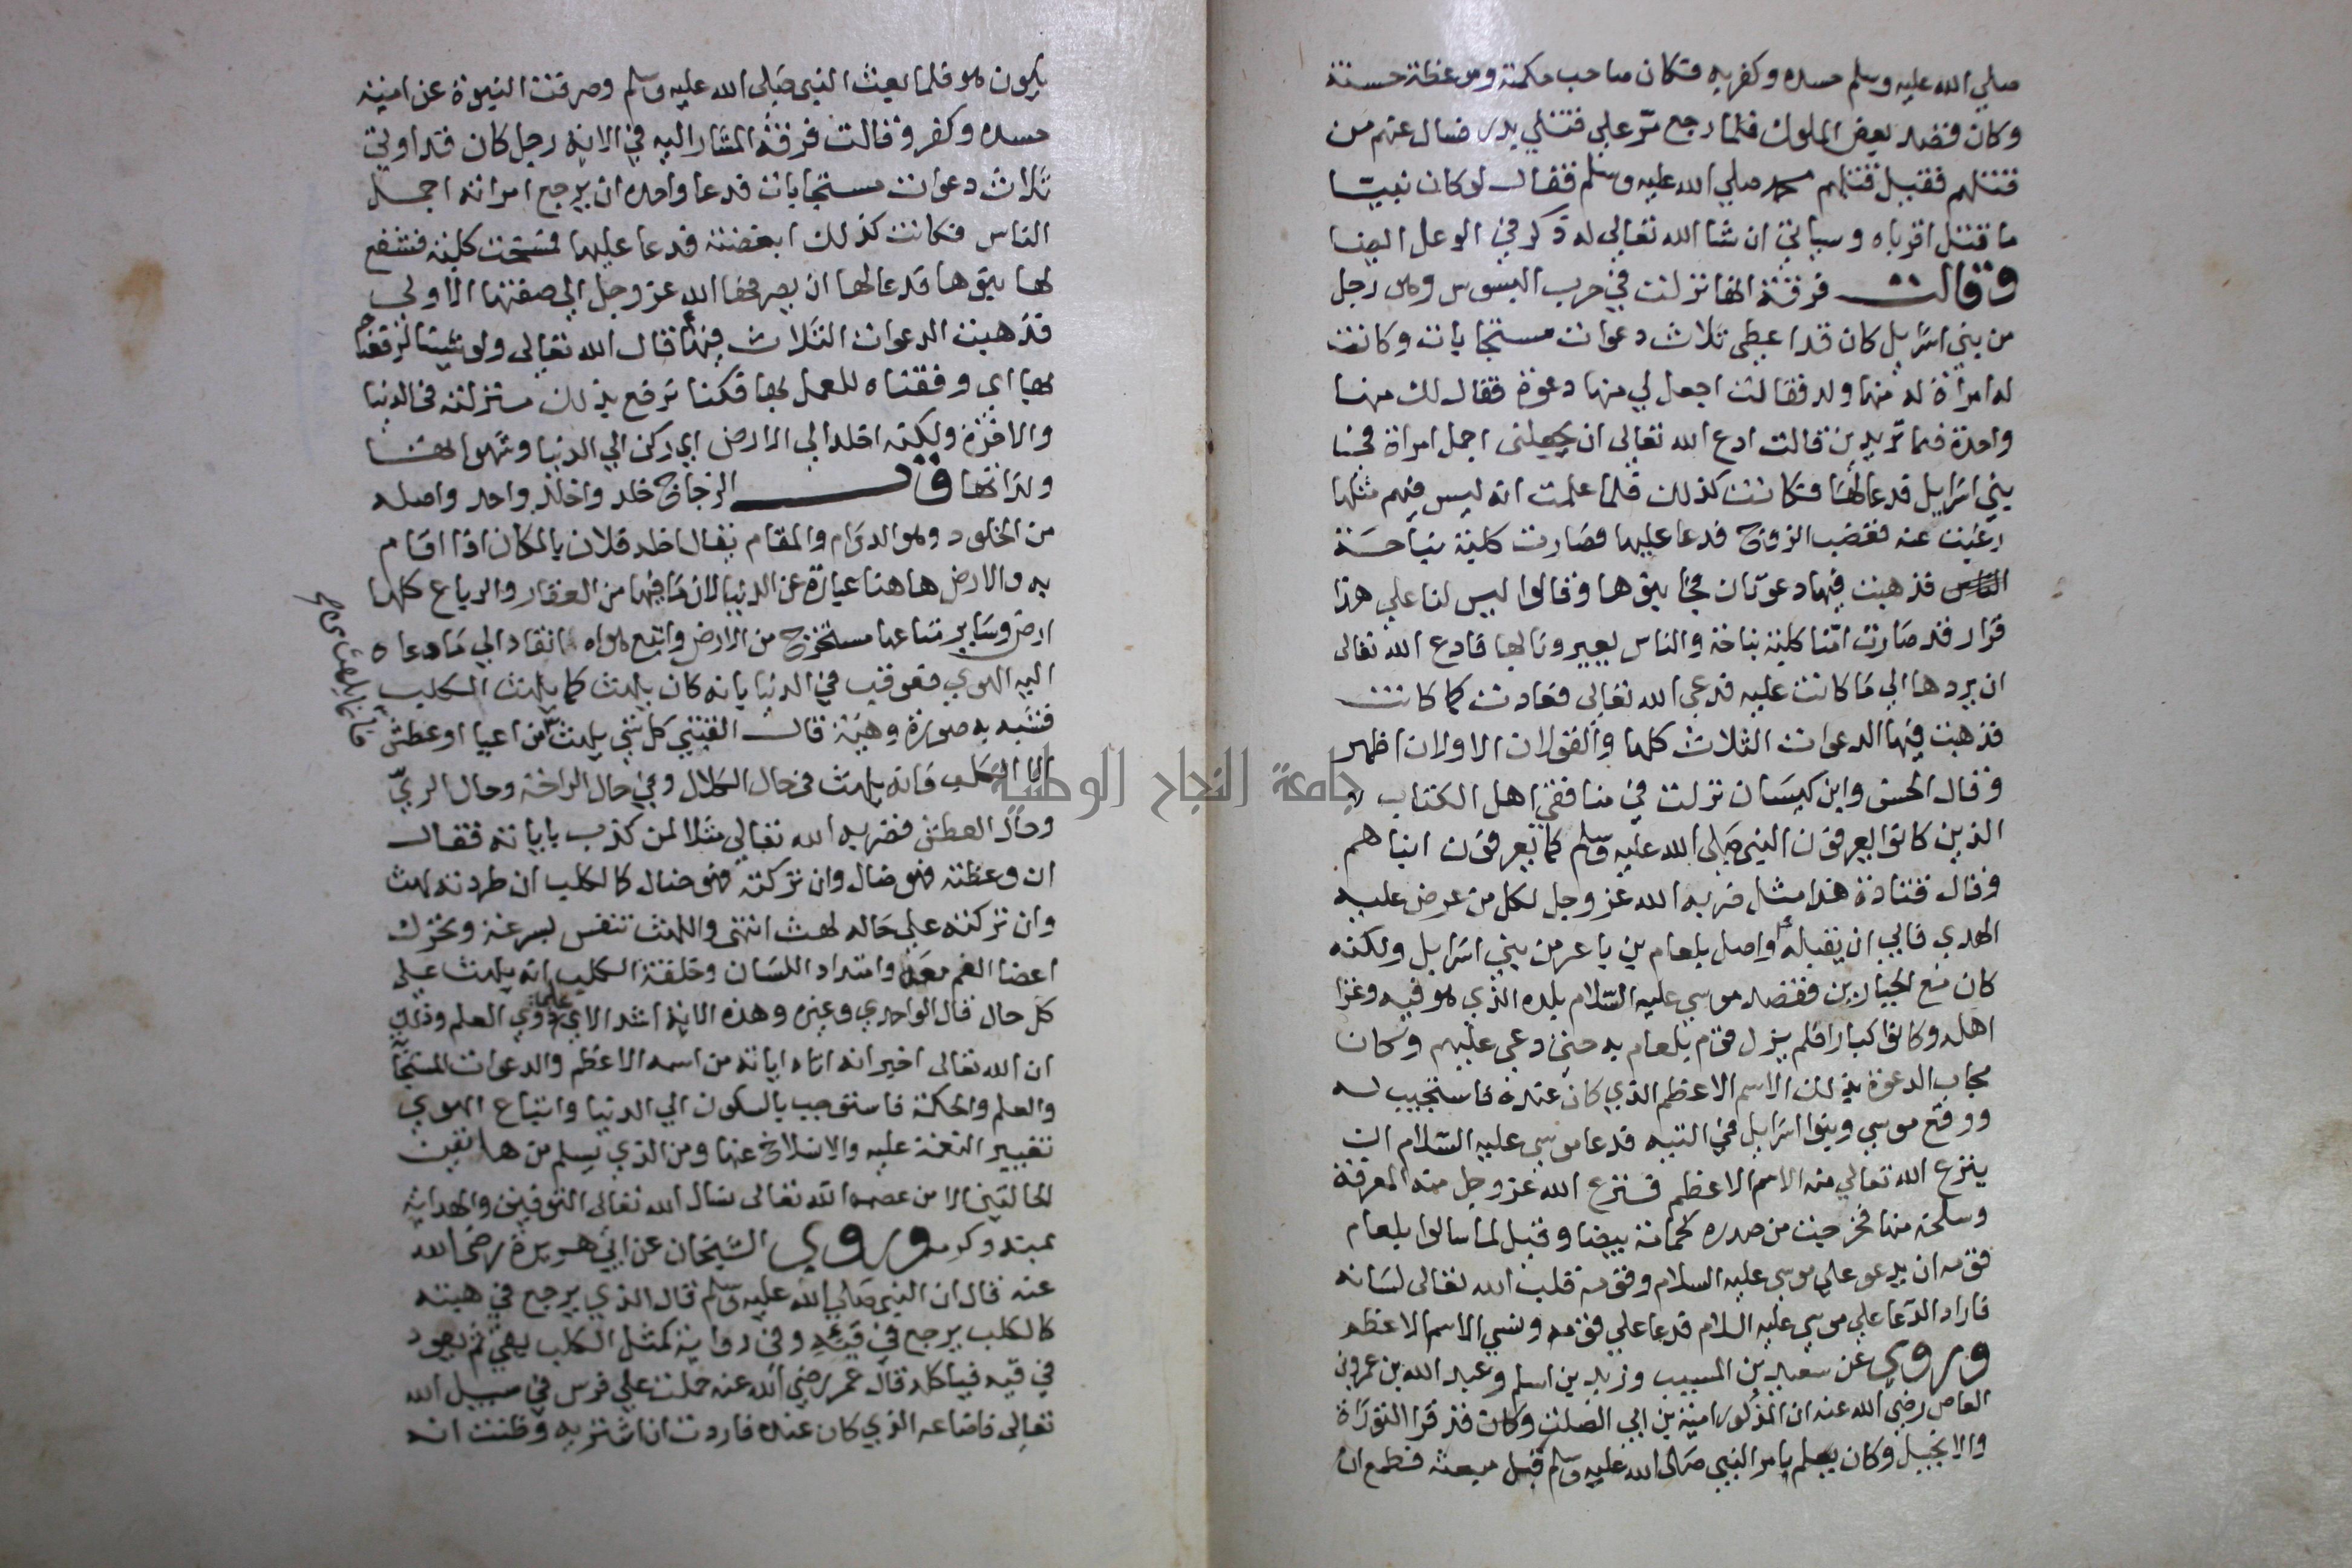 صلي الله عليه وسلم حسده وكفر به فكان صاحب حكمة وموعظة حسنة
وكان قصد بعض الملوك فلما رجع مر علي قتلي بدر فسال عنهم من
قتلهم فقيل قتلهم محمد صلي الله عليه وسلم فقال لو كان نبيا
ما قتل اقرباه وسياتي ان شا الله تعالي له ذكر في الوعل ايضا
وقالت فرقة انها نزلت في حرب البسوس وهو رجل
من بني اسرايل كان قد اعطي ثلاث دعوات مستجابات وكانت
له امراة له منها ولد فقالت اجعل لي منها دعوة فقال لك منها
واحدة فما تريدين قالت ادع الله تعالى ان يجعلني اجمل امراة في
بني اسرايل فدعا لها فكانت كذلك فلما علمت انه ليس فيهم مثلها
رغبت عنه فغضب الزوج فدعا عليها فصارت كلبة نباحة
فذهبت فيها دعوتان فجا بنوها وقالوا ليس لنا علي هذا
قرار قد صارت امنا كلبة نباحة والناس يعيرونا بها فادع الله تعالى
ان يردها الي ما كانت عليه فدعي الله تعالى فعادت كما كانت
فذهبت فيها الدعوات الثلاث كلها والقولان الاولان اظهر
وقال الحسن وابن كيسان نزلت في منافقي اهل الكتاب
الذين كانوا يعرفون النبي صلي الله عليه وسلم كما يعرفون ابناهم
وقال قتادة هذا مثل ضربه الله عز وجل لكل من عرض عليه
الهدي فابي ان يقبله واصل بلعام بن باعر من بني اسرايل ولكنه
كان مع الجبارين فقصد موسي عليه السلام بلده الذي هو فيه وغزا
اهله وكانوا كبارا فلم يزل قوم بلعام به حتي دعي عليهم وكان
مجاب الدعوة بذلك الاسم الاعظم الذي كان عنده فاستجيب له
ووقع موسي وبنوا اسرايل في التيه فدعا موسي عليه السلام ان
ينزع الله تعالي منه الاسم الاعظم فنزع الله عز وجل منه المعرفة
وسلخه منها فخرجت من صدره كحمامة بيضا وقيل لما سالوا بلعام
قومه ان يدعو علي موسي عليه السلام وقومه قلب الله تعالى لسانه
فاراد الدعا علي موسي عليه السلام فدعا علي قومه ونسي الاسم الاعظم
وروي عن سعيد بن المسيب وزيد بن اسلم وعبد الله بن عمرو بن
العاص رضي الله عنه ان المذكور امية بن ابي الصلت وكان قد قرا التوراة
والانجيل وكان يعلم بامر النبي صلى الله عليه وسلم قبل مبعثه فطمع ان
يكون هو فلما بعث النبي صلي الله عليه وسلم وصرفت النبوة عن امية
حسده وكفر وقالت فرقة المشار اليه في الاية رجل كان قد اوتي
ثلاث دعوات مستجابات فدعا واحده ان يرجع امراته اجمل
الناس فكانت كذلك ابغضته فدعا عليها فمسخت كلبة فشفع
لها بنوها فدعا لها ان يصرفها الله عز وجل الي صفتها الاولي
فذهبت الدعوات الثلاث فيها قال الله تعالى ولو شئنا لرفعناه
بها اي وفقناه للعمل بها فكنا نرفع بذلك منزلته في الدنيا
والاخرة ولكنه اخلد الي الارض اي ركن الي الدنيا وشهواتها
ولذاتها قال الزجاج خلد واخلد واحد واصله
من الخلود وهو الدوام والمقام يقال اخلد فلان بالمكان اذا اقام
به والارض هاهنا عبارة عن الدنيا لان ما فيها من العقار والرباع كلها
ارض وساير متاعها مستخرج من الارض واتبع هواه انقاد الي ما دعاه
اليه الهوي فعوقب في الدنيا بانه كان يلهث كما يلهث الكلب
فشبه به صورة وهيئة قال القتيبي كل شي يلهث من اعيا او عطش
الا الكلب فانه يلهث في حال الكلال وفي حال الراحة وحال الري
وحال العطش فضربه الله تعالي مثلا لمن كذب باياته فقال
ان وعظته فهو ضال وان تركته فهو ضال كالكلب ان طردته لهث
وان تركته علي حاله لهث انتهى واللهث تنفس بسرعة وتحرك
اعضا الفم معه وامتداد اللسان وخلقة الكلب انه يلهث علي
كل حال قال الواحدي وغيره وهذه الاية اشد الاي علي ذوي العلم وذلك
ان الله تعالى اخبر انه اتاه اياته من اسمه الاعظم والدعوات المستجابة
والعلم والحكمة فاستوجب بالسكون الي الدنيا واتباع الهوي
تغيير النعمة عليه والانسلاخ عنها ومن الذي يسلم من هاتين
الحالتين الا من عصمه الله تعالى نسال الله تعالى التوفيق والهداية
بمنه وكرمه وروي الشيخان عن ابي هريرة رضي الله
عنه قال ان النبي صلي الله عليه وسلم قال الذي يرجع في هبته
كالكلب يرجع في قيئه وفي رواية كمثل الكلب يقي ثم يعود
في قيه فياكله قال عمر رضي الله عنه حملت علي فرس في سبيل الله
تعالى فاضاعه الذي كان عنده فاردت ان اشتريه وظننت انه
جامعة النجاح الوطنية